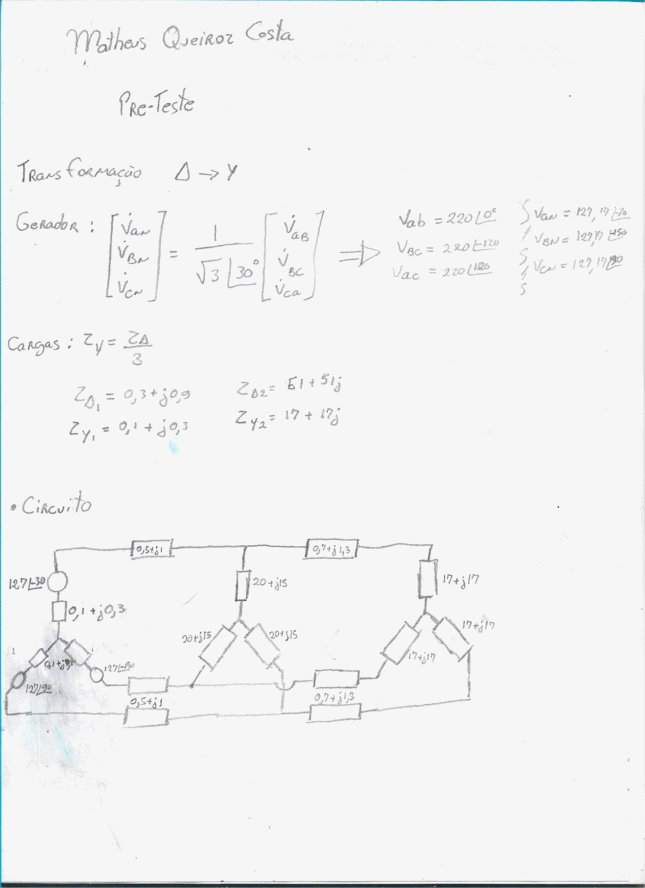 Matheus Queiroz Costa
Pre-Teste
Transformação Δ → Y
Gerador : [V̇aN V̇BN V̇CN] = 1/√3∠30° [V̇aB V̇BC V̇ca] ⇒
Vab = 220∠0°
VBC = 220∠-120
Vac = 220∠120
VaN = 127,17∠-30
VBN = 127,17∠-150
VCN = 127,17∠90
Cargas : ZY = ZΔ/3
ZΔ1 = 0,3 + j0,9 ZΔ2 = 51 + 51j
ZY1 = 0,1 + j0,3 ZY2 = 17 + 17j
• Circuito
0,5+j1 0,7+j1,3
127∠-30 20+j15 17+j17
0,1+j0,3
20+j15 20+j15 17+j17 17+j17
127∠90
0,5+j1 0,7+j1,3